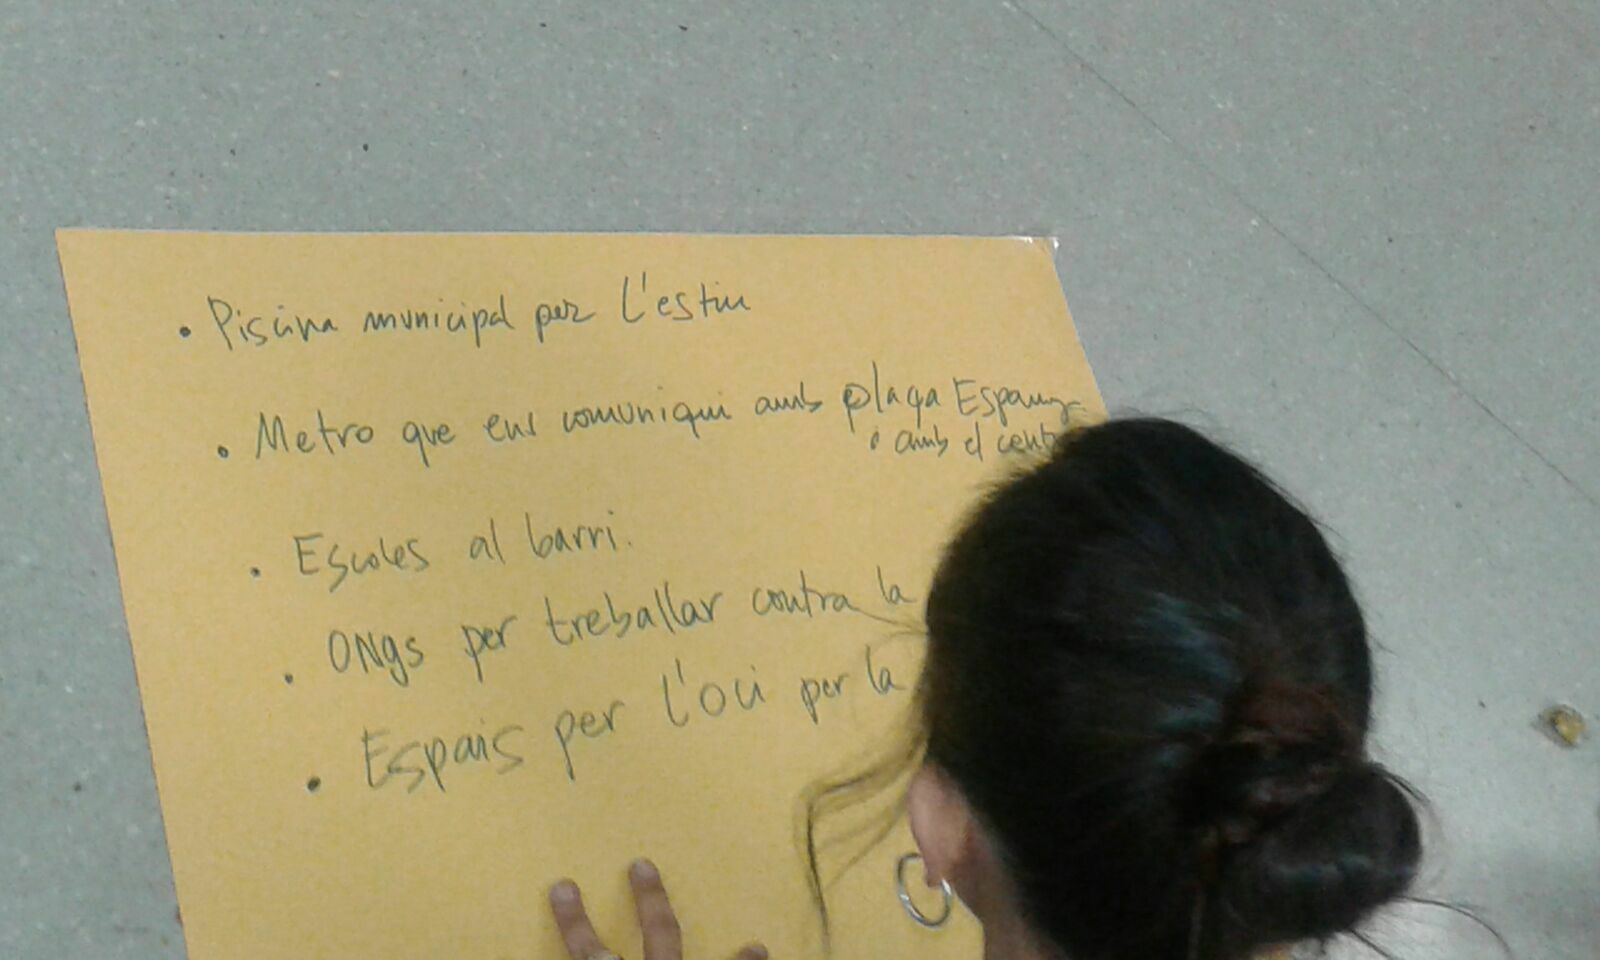 • Piscina municipal per l'estiu
• Metro que ens comuniqui amb plaça Espany
i amb el cent
• Escoles al barri.
• ONgs per treballar contra la
• Espais per l'oci per la